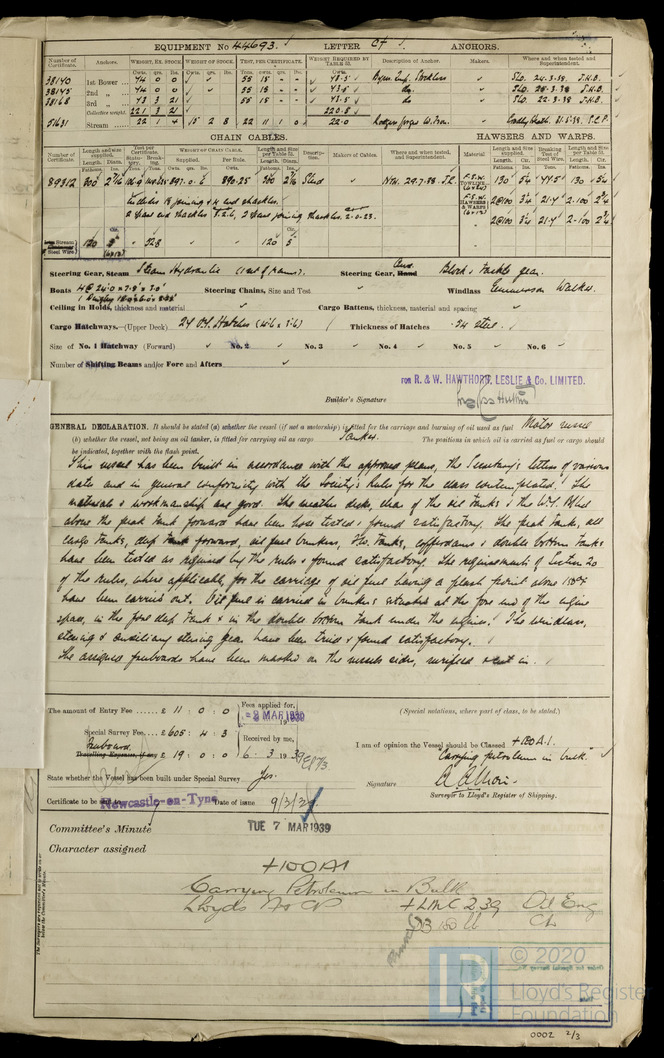 EQUIPMENT No 44693. LETTER C† ANCHORS.
Number of Certificate. Anchors. WEIGHT, EX. STOCK. WEIGHT OF STOCK. TEST, PER CERTIFICATE. WEIGHT REQUIRED BY TABLE 53. Description of Anchor. Makers. Where and when tested and Superintendent.
Cwts. qrs. lbs. Cwts. qrs. lbs. Tons. cwts. qrs. lbs. Cwts.
38140 1st Bower 74 0 0 55 15 - - 73.5 Byers Imp. Stockless S.O. 24.3.38. J.H.B.
38145 2nd " 74 0 0 55 15 - - 73.5 do. S.O. 28.3.38 J.H.B.
38168 3rd " 73 3 21 55 15 - - 73.5 do S.O. 22.3.38 J.H.B.
Collective weight 221 3 21 220.5
51631 Stream 22 1 4 15 2 8 22 11 1 0 22.0
CHAIN CABLES. HAWSERS AND WARPS.
Number of Certificate. Length and size supplied. Test per Certificate. WEIGHT OF CHAIN CABLE. Length and Size per Table 53. Description. Makers of Cables. Where and when tested, and Superintendent. Material Length and Size supplied. Breaking Test of Steel Wire. Length and Size per Table 53.
Supplied. Per Rule.
89312 300 2 7/16 897.0.6 890.25 300 2 7/16 Stud 29.7.38 F.S.W. TOWLINE 130 5¼ 44.5 130 5¼
Includes 18 joining & 4 end shackles.
F.S.W. HAWSERS & WARPS 2@100 3¼ 21.4 2-100 2¾
2@100 3¼ 21.4 2-100 2¾
Steel Wire 120 5 328 120 5
Steering Gear, Steam Steam Hydraulic (1 set of rams). Steering Gear, Hand Aux. Block & tackle gear.
Boats 4 @ 24.0 x 7.9 x 3.0 Steering Chains, Size and Test Windlass Emmerson Walker.
Ceiling in Holds, thickness and material Cargo Battens, thickness, material and spacing
Cargo Hatchways.—(Upper Deck) 27 O.T. Hatches (4'.6 x 3'.6) Thickness of Hatches .54 steel.
Size of No. 1 Hatchway (Forward) No. 2 No. 3 No. 4 No. 5 No. 6
Number of Shifting Beams and/or Fore and Afters
FOR R. & W. HAWTHORN, LESLIE & CO. LIMITED.
Builder's Signature
GENERAL DECLARATION. It should be stated (a) whether the vessel (if not a motorship) is fitted for the carriage and burning of oil used as fuel Motor vessel
(b) whether the vessel, not being an oil tanker, is fitted for carrying oil as cargo Tanker. The positions in which oil is carried as fuel or cargo should
be indicated, together with the flash point.
This vessel has been built in accordance with the approved plans, the Secretary's letters of various
dates and in general conformity with the Society's Rules for the class contemplated. The
materials & workmanship are good. The weather decks, clear of the oil tanks & the W.T. Blhd
above the peak tank forward have been hose tested & found satisfactory. The peak tank, all
cargo tanks, deep tank forward, oil fuel bunkers, tanks, cofferdams & double bottom tanks
have been tested as required by the rules & found satisfactory. The requirements of Section 20
of the rules, where applicable, for the carriage of oil fuel having a flash point above 150°F
have been carried out. Oil fuel is carried in bunkers situated at the fore end of the engine
space, in the fore deep tank & in the double bottom tank under the engine. The windlass,
steering & auxiliary steering gear have been tried & found satisfactory.
The assigned freeboards have been marked on the vessels sides, verified & cut in.
The amount of Entry Fee £ 11 : 0 : 0 Fees applied for, 2 MAR 1939 (Special notations, where part of class, to be stated.)
Special Survey Fee £ 605 : 4 : 3 Received by me, I am of opinion the Vessel should be Classed +100A1.
Freeboard Travelling Expenses, if any £ 19 : 0 : 0 6.3.1939 Carrying petroleum in bulk.
State whether the Vessel has been built under Special Survey Yes. Signature
Surveyor to Lloyd's Register of Shipping.
Certificate to be sent to Newcastle-on-Tyne Date of issue 9/3/39
Committee's Minute TUE 7 MAR 1939
Character assigned
+100A1
Carrying Petroleum in Bulk
Lloyds A & CP +LMC 2.39 Oil Eng
DB 180 lb CL
© 2020
Lloyd's Register
Foundation
0002 2/3